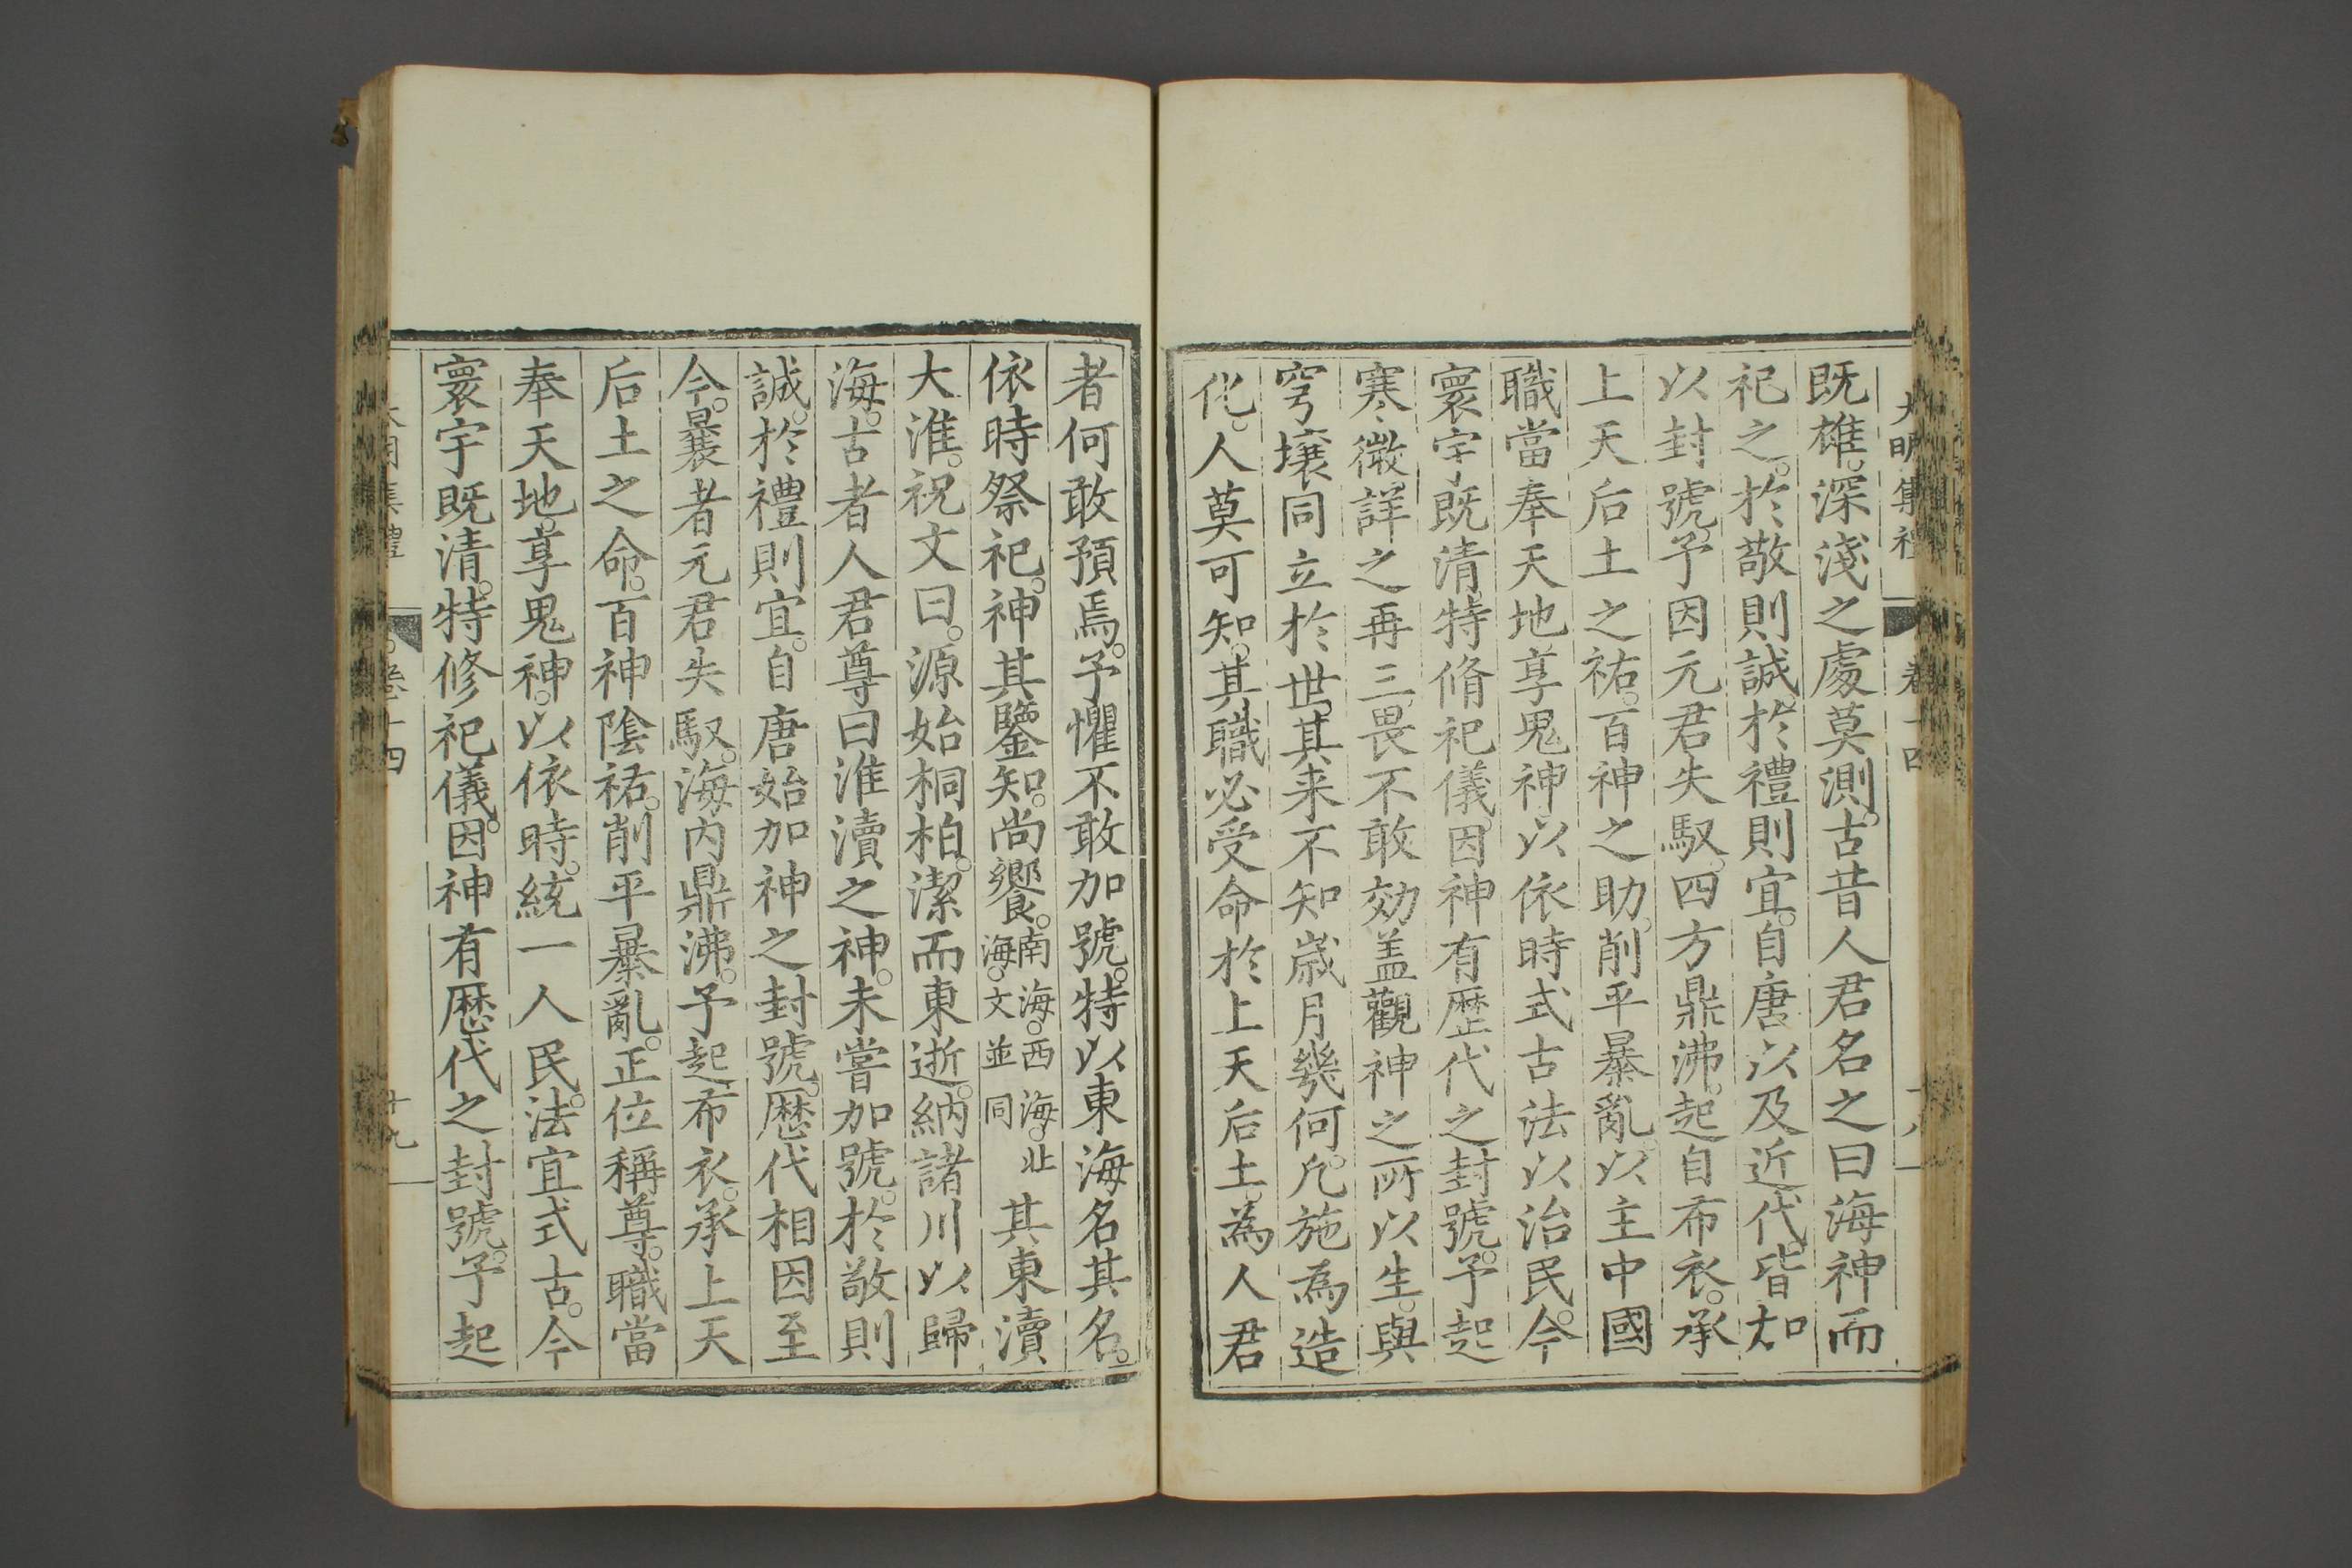 大明集禮 卷十四
既雄。深淺之處莫測。古昔人君名之曰海神而
祀之。於敬則誠。於禮則宜。自唐以及近代。皆加
以封號。予因元君失馭。四方鼎沸。起自布衣。承
上天后土之祐。百神之助。削平暴亂。以主中國
職當奉天地享鬼神以依時式古法以治民。今
寰宇既清特脩祀儀。因神有歷代之封號。予起
寒微。詳之再三。畏不敢効。盖觀神之所以生。與
穹壤同立於世。其来不知歳月幾何。凡施為造
化。人莫可知。其職必受命於上天后土。為人君
者何敢預焉。予懼不敢加號。特以東海名其名。
依時祭祀。神其鑒知。尚饗。南海。西海。北海。文並同 其東瀆
大淮。祝文曰。源始桐柏。潔而東逝。納諸川以歸
海。古者人君尊曰淮瀆之神。未嘗加號。於敬則
誠。於禮則宜。自唐始加神之封號。歷代相因至
今。曩者元君失馭。海內鼎沸。予起布衣。承上天
后土之命。百神陰祐。削平暴亂。正位稱尊。職當
奉天地。享鬼神。以依時。統一人民。法宜式古。今
寰宇既清。特修祀儀。因神有歷代之封號。予起
卷十四 十九